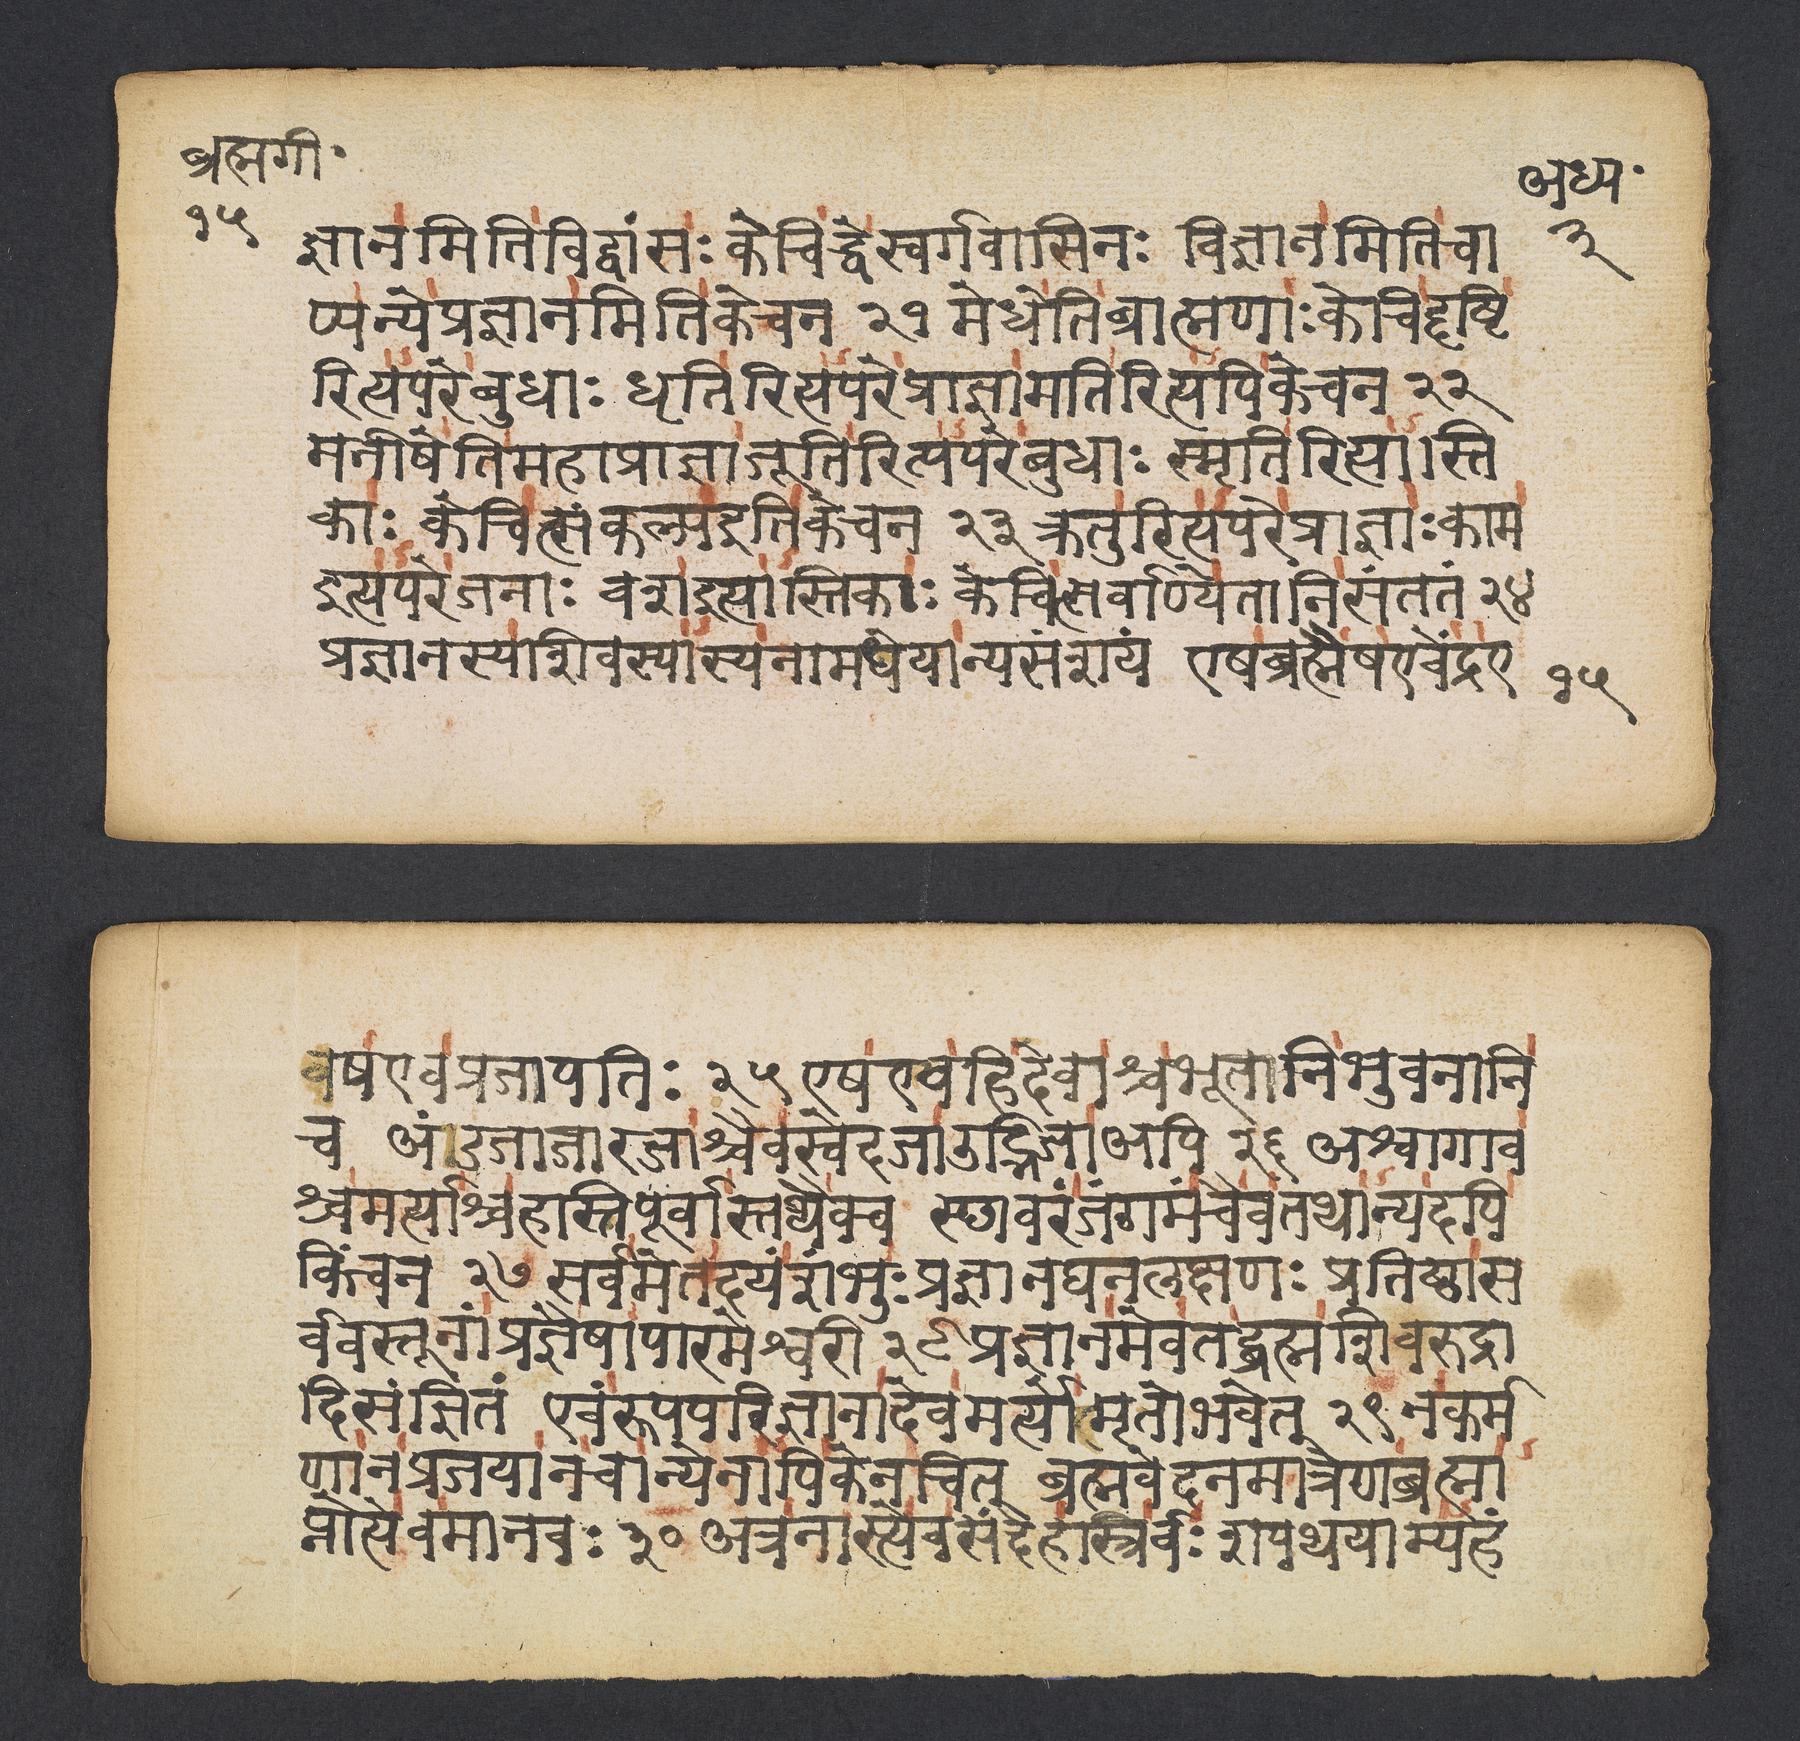 ब्रह्मगी॰
१५
अध्य॰
३
ज्ञानमितिविद्वांसः केचिद्वेस्वर्गवासिनः विज्ञानमितिचा
प्यन्येप्रज्ञानमितिकेचन २१ मेधेतिब्राह्मणाः केचिदृष्टि
रित्यपरेबुधाः धृतिरित्यपरेप्राज्ञामतिरित्यपिकेचन २२
मनीषेतिमहाप्राज्ञाजूतिरित्यपरेबुधाः स्मृतिरित्या।स्ति
काः केचित्संकल्पइतिकेचन २३ क्रतुरित्यपरेप्राज्ञाः काम
इत्यपरेजनाः वशइत्यास्तिकाः केचित्सर्वाण्येतानिसंततं २४
प्रज्ञानस्यशिवस्यास्यनामधेयान्यसंशयं एषब्रह्मैषएवेंद्रए
१५
वषएवप्रजापतिः २५ एषएवहिदेवाश्चभूतानिभुवनानि
च अंडजाजारजाश्चैवस्वेदजाउद्भिजाअपि २६ अश्वागाव
श्चमर्त्याश्चहास्तिपूर्वास्तथैवच स्छावरंजंगमंचैवतथान्यदपि
किंचन २७ सर्वमेतदयंशंभुः प्रज्ञानघनलक्षणः प्रतिष्ठास
र्ववस्तूनांप्रज्ञैषापारमेश्वरी २८ प्रज्ञानमेवतद्ब्रह्मशिवरुद्रा
दिसंज्ञितं एवंरूपपरिज्ञानादेवमर्त्योमृतोभवेत् २९ नकर्म
णानप्रजयानचान्येनापिकेनचित् ब्रह्मवेदनमात्रेणब्रह्मा
प्नोत्येवमानवः ३० अत्रनास्त्येवसंदेहस्त्रिर्वः शपथयाम्यहं